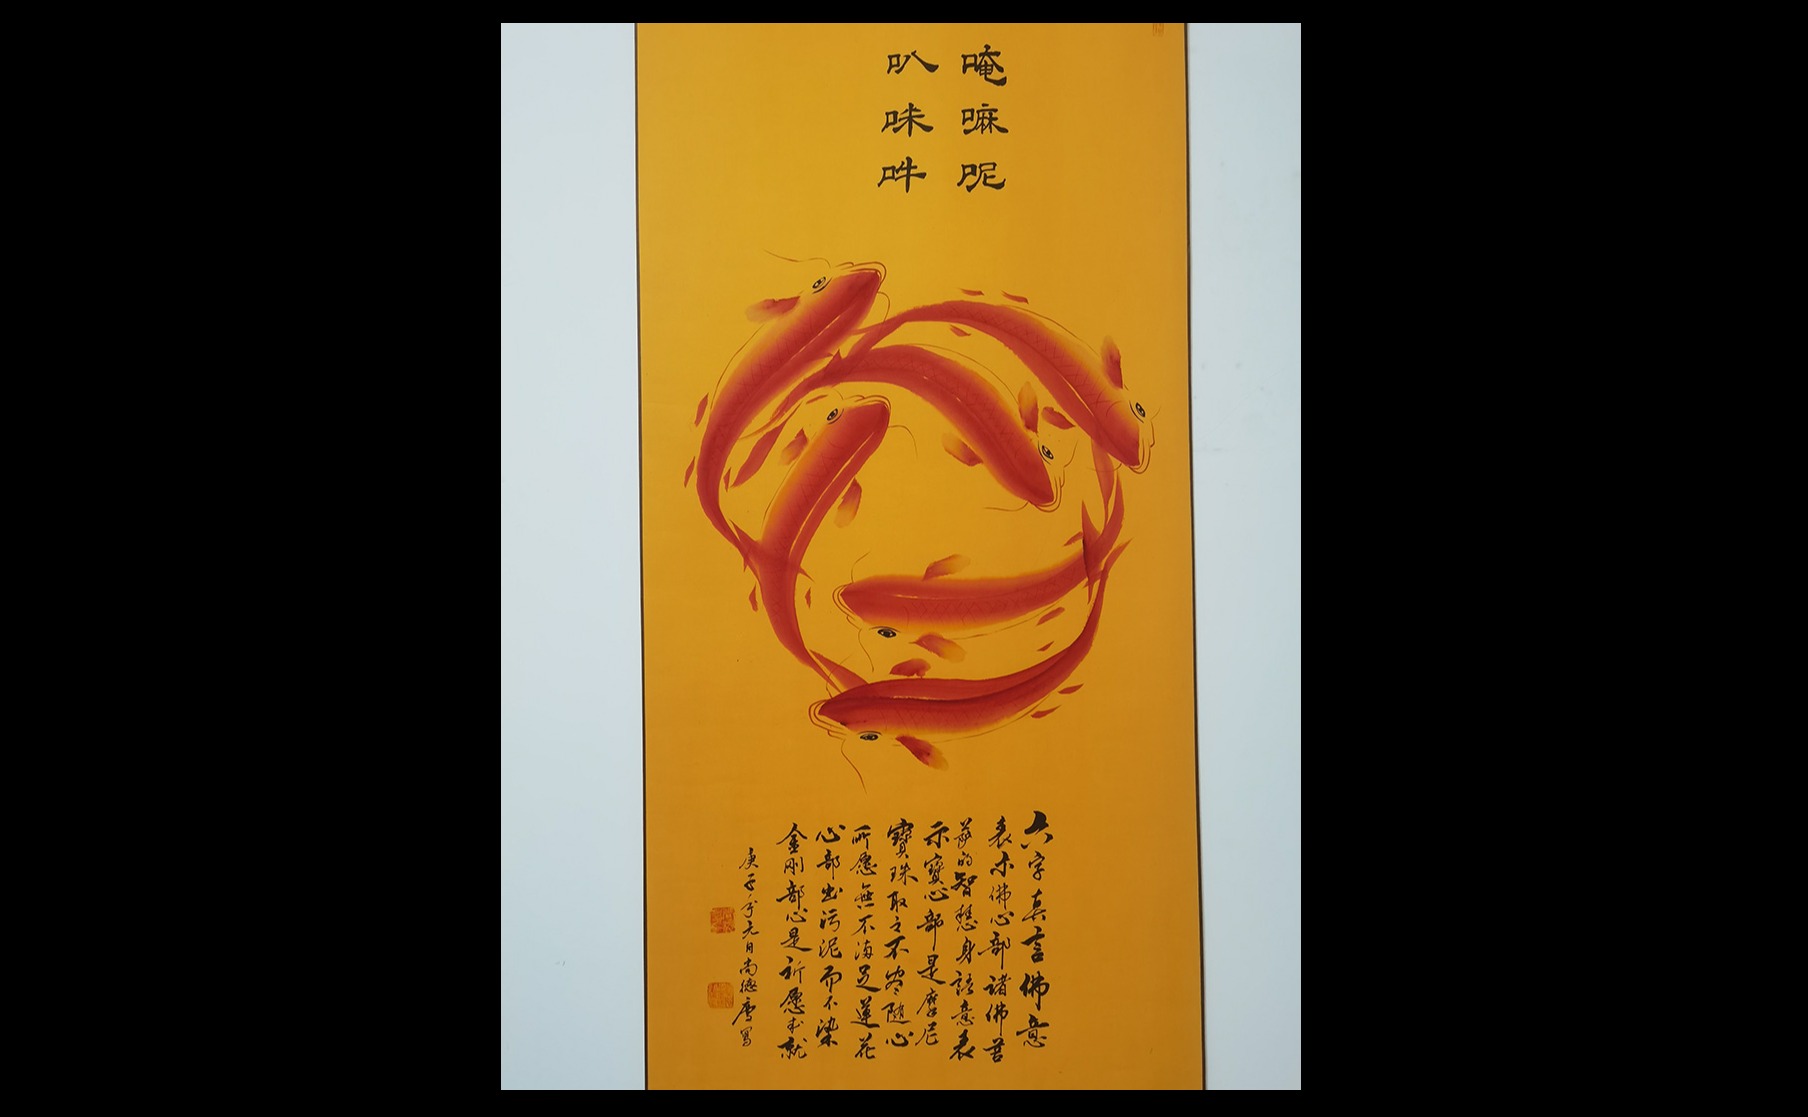 唵嘛呢
叭咪吽
六字真言佛意
表示佛心部諸佛菩
薩的智慧身語意表
示寶心部是摩尼
寶珠取之不尽隨心
所愿無不满足蓮花
心部出污泥而不染
金刚部心是祈愿成就
庚子年元月尚德 写